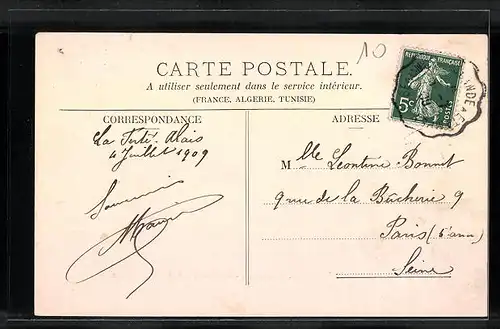 10
CARTE POSTALE.
A utiliser seulement dans le service intérieur.
(FRANCE, ALGERIE, TUNISIE)
REPUBLIQUE FRANÇAISE
5c
POSTES
CORRESPONDANCE
La Ferté-Alais
4 Juillet 1909
Souvenir
ADRESSE
Mlle Léontine Bonnet
9 rue de la Bûcherie 9
Paris (5e arr)
Seine